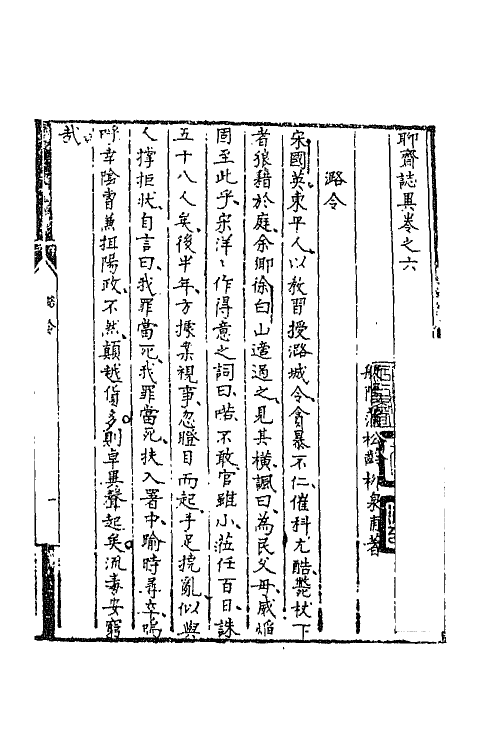 聊齋誌異卷之六
般陽蒲松齡柳泉甫著
潞令
宋國英東平人以教習授潞城令貪暴不仁催科尤酷斃杖下
者狼藉於庭余鄉徐白山適過之見其橫諷曰為民父母威焰
固至此乎宋洋〻作得意之詞曰喏不敢官雖小蒞任百日誅
五十八人矣後半年方據案視事忽瞪目而起手足撓亂似與
人撐拒狀自言曰我罪當死我罪當死扶入署中踰時尋卒嗚
呼幸陰曹兼攝陽政不然顛越貨多則卓異聲起矣流毒安窮
哉
潞令
一